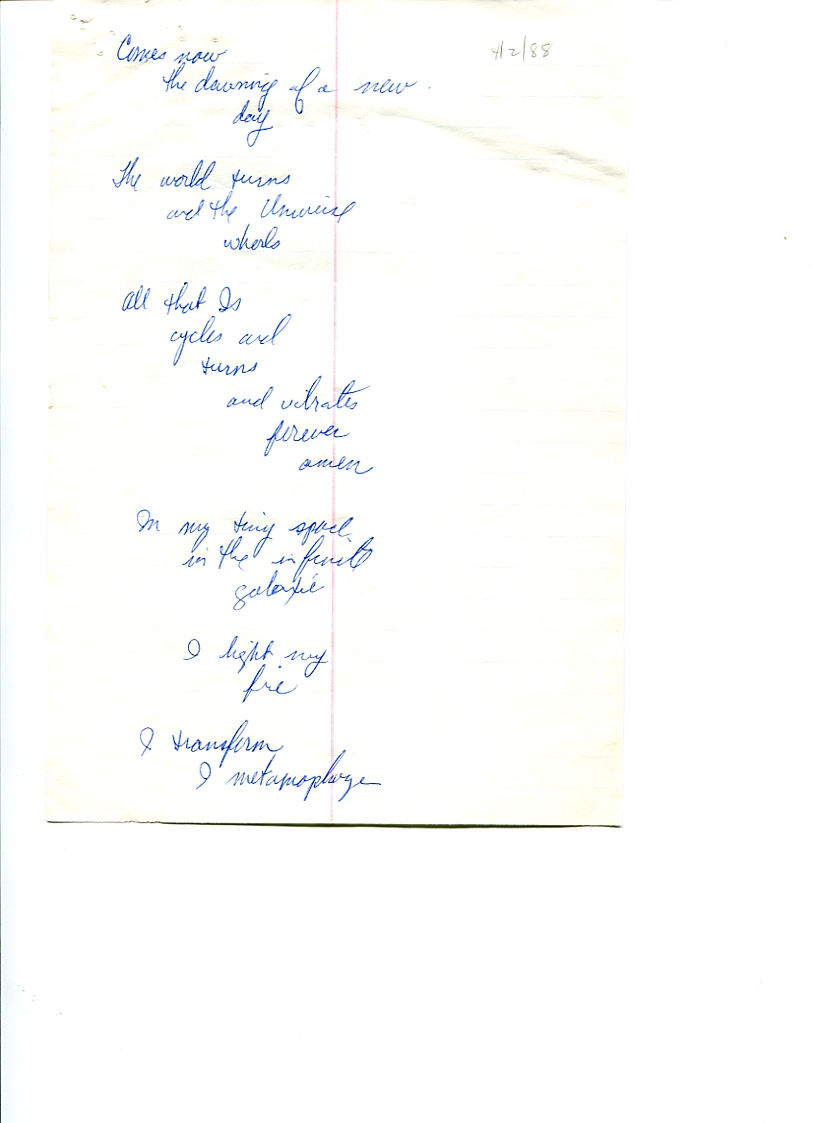 Comes now
the dawning of a new
day
The world turns
and the Universe
whorls
All that Is
cycles and
turns
and vibrates
forever
amen
In my tiny space
in the infinite
galaxie
I light my
fire
I transform
I metamophize